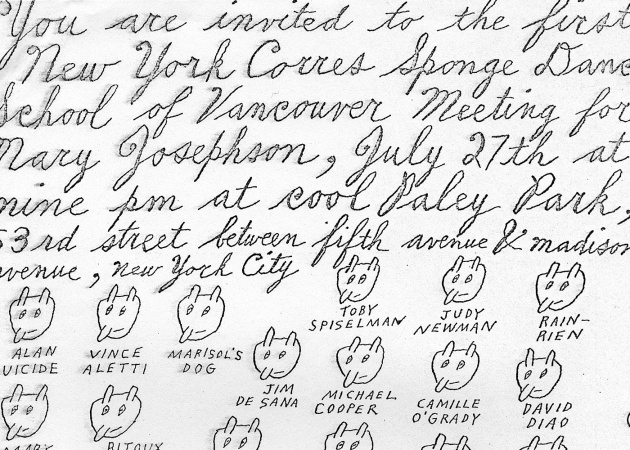 You are invited to the first
New York Corres Sponge Danc
School of Vancouver Meeting for
Mary Josephson, July 27th at
nine pm at cool Paley Park,
53rd street between fifth avenue & madison
avenue, new York City
TOBY SPISELMAN
JUDY NEWMAN
RAIN-
RIEN
ALAN
UICIDE
VINCE
ALETTI
MARISOL'S
DOG
JIM
DE SANA
MICHAEL
COOPER
CAMILLE
O'GRADY
DAVID
DIAO